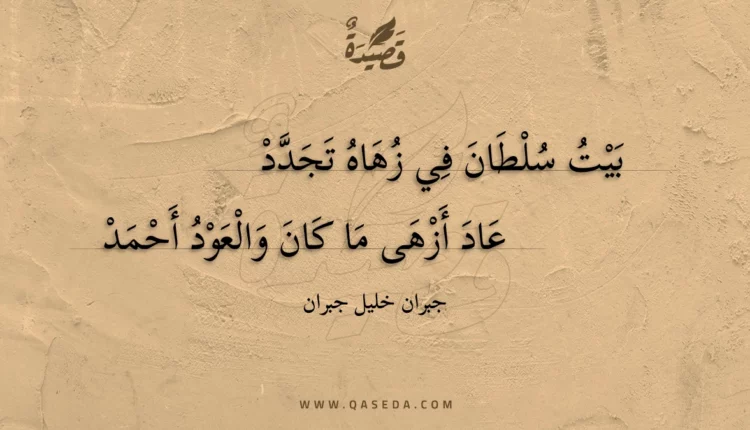 قَصِيدَةٌ
بَيْتُ سُلْطَانَ فِي زُهَاهُ تَجَدَّدْ
عَادَ أَزْهَى مَا كَانَ وَالْعَوْدُ أَحْمَدْ
جبران خليل جبران
WWW.QASEDA.COM